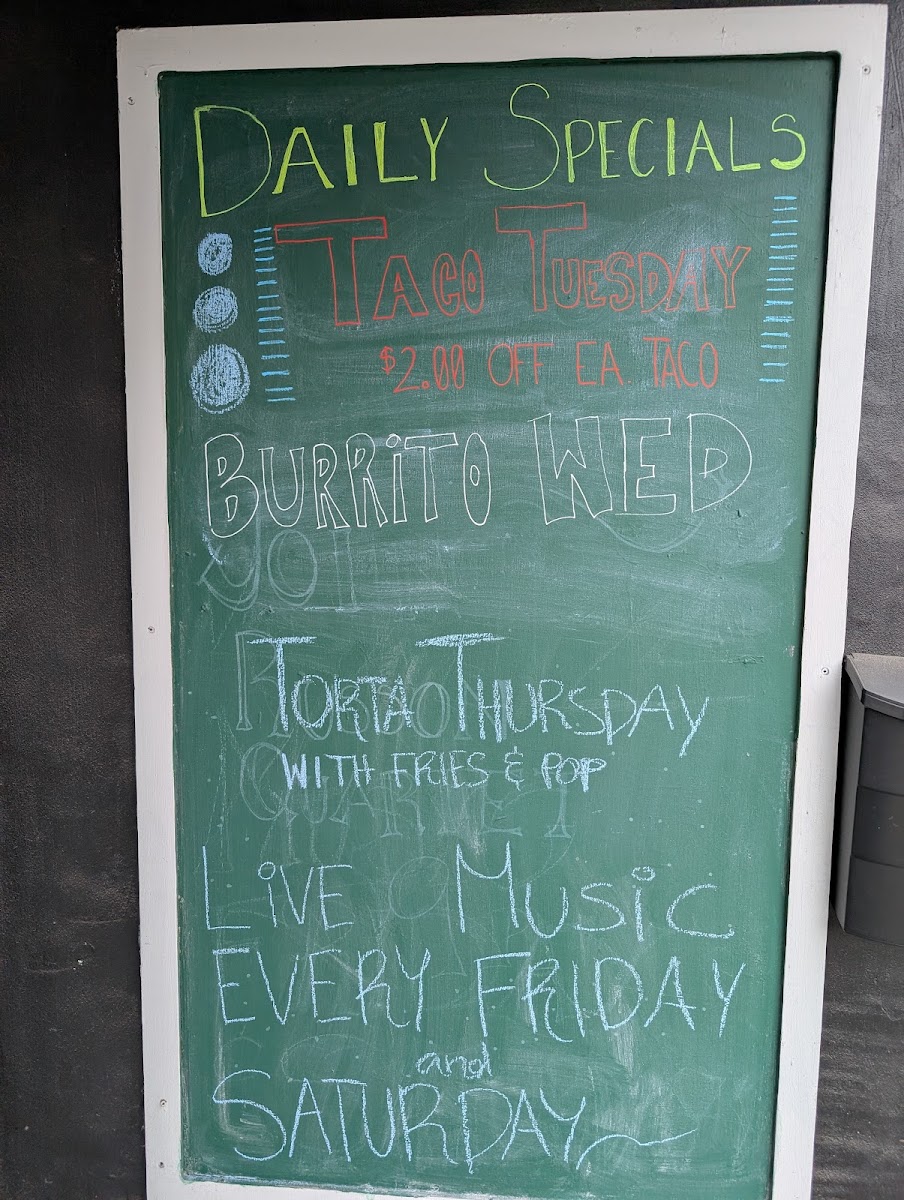 DAILY SPECIALS
TACO TUESDAY
$2.00 OFF EA TACO
BURRiTO WED
TORTA THURSDAY
WITH FRIES & POP
LiVE MUSiC
EVERY FRIDAY
and
SATURDAY